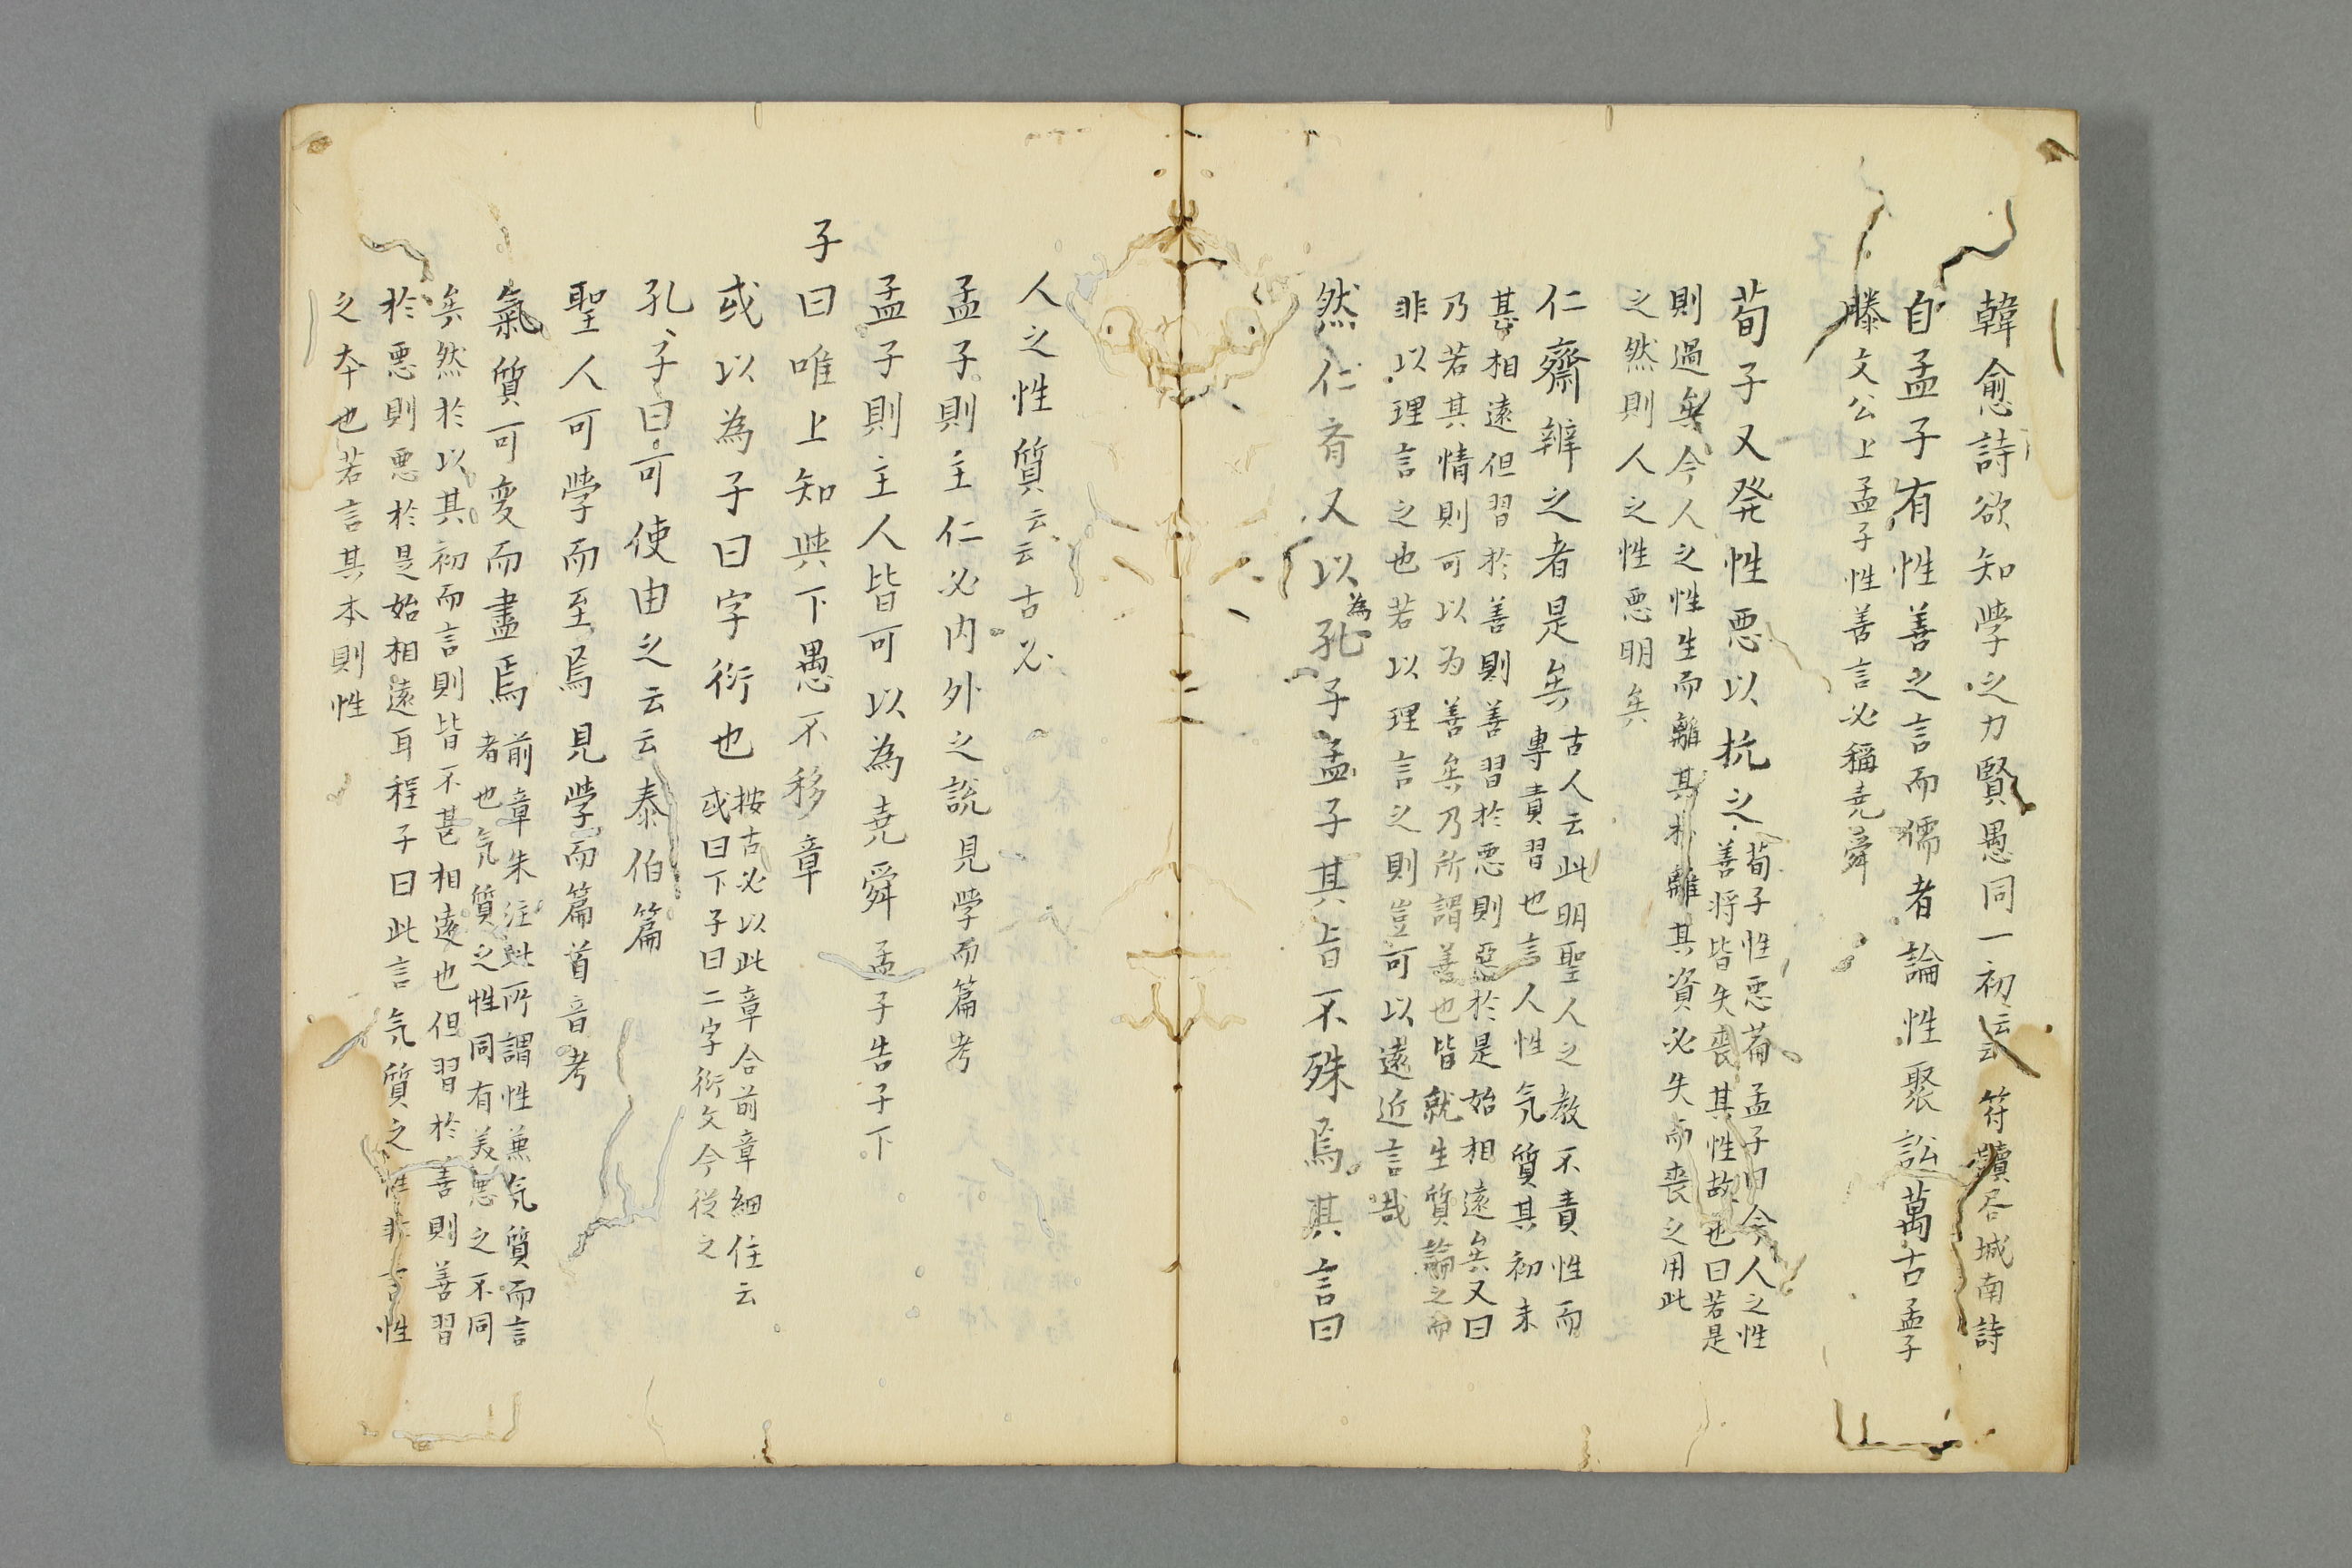 韓愈詩欲知学之力賢愚同一初云云 符讀各城南詩
自孟子有性善之言而孺者論性聚訟萬古孟子
滕文公上孟子性善言必稱尭舜
荀子又発性悪以抗之荀子性悪萹孟子曰今人之性
善将皆失喪其性故也曰若是
則過矣今人之性生而離其朴離其資必失而喪之用此
之然則人之性悪明矣
仁齋辨之者是矣古人云此明聖人之教不責性而
專責習也言人性気質其初未
甚相遠但習於善則善習於悪則惡於是始相遠矣又曰
乃若其情則可以为善矣乃所謂善也皆就生質論之而
非以理言之也若以理言之則豈可以遠近言哉
然仁斉又以為孔子孟子其旨不殊焉其言曰
人之性質云云古必
孟子則主仁必内外之説見学而篇考
孟子則主人皆可以為尭舜孟子告子下
子曰唯上知與下愚不移章
或以為子曰字衍也按古必以此章合前章細住云
或曰下子曰二字衍文今従之
孔子曰可使由之云云泰伯篇
聖人可学而至焉見学而篇首音考
氣質可変而盡焉前章朱注此所謂性兼気質而言
者也気質之性同有美悪之不同
矣然於以其初而言則皆不甚相遠也但習於善則善習
於悪則悪於是始相遠耳程子曰此言気質之性非言性
之夲也若言其本則性